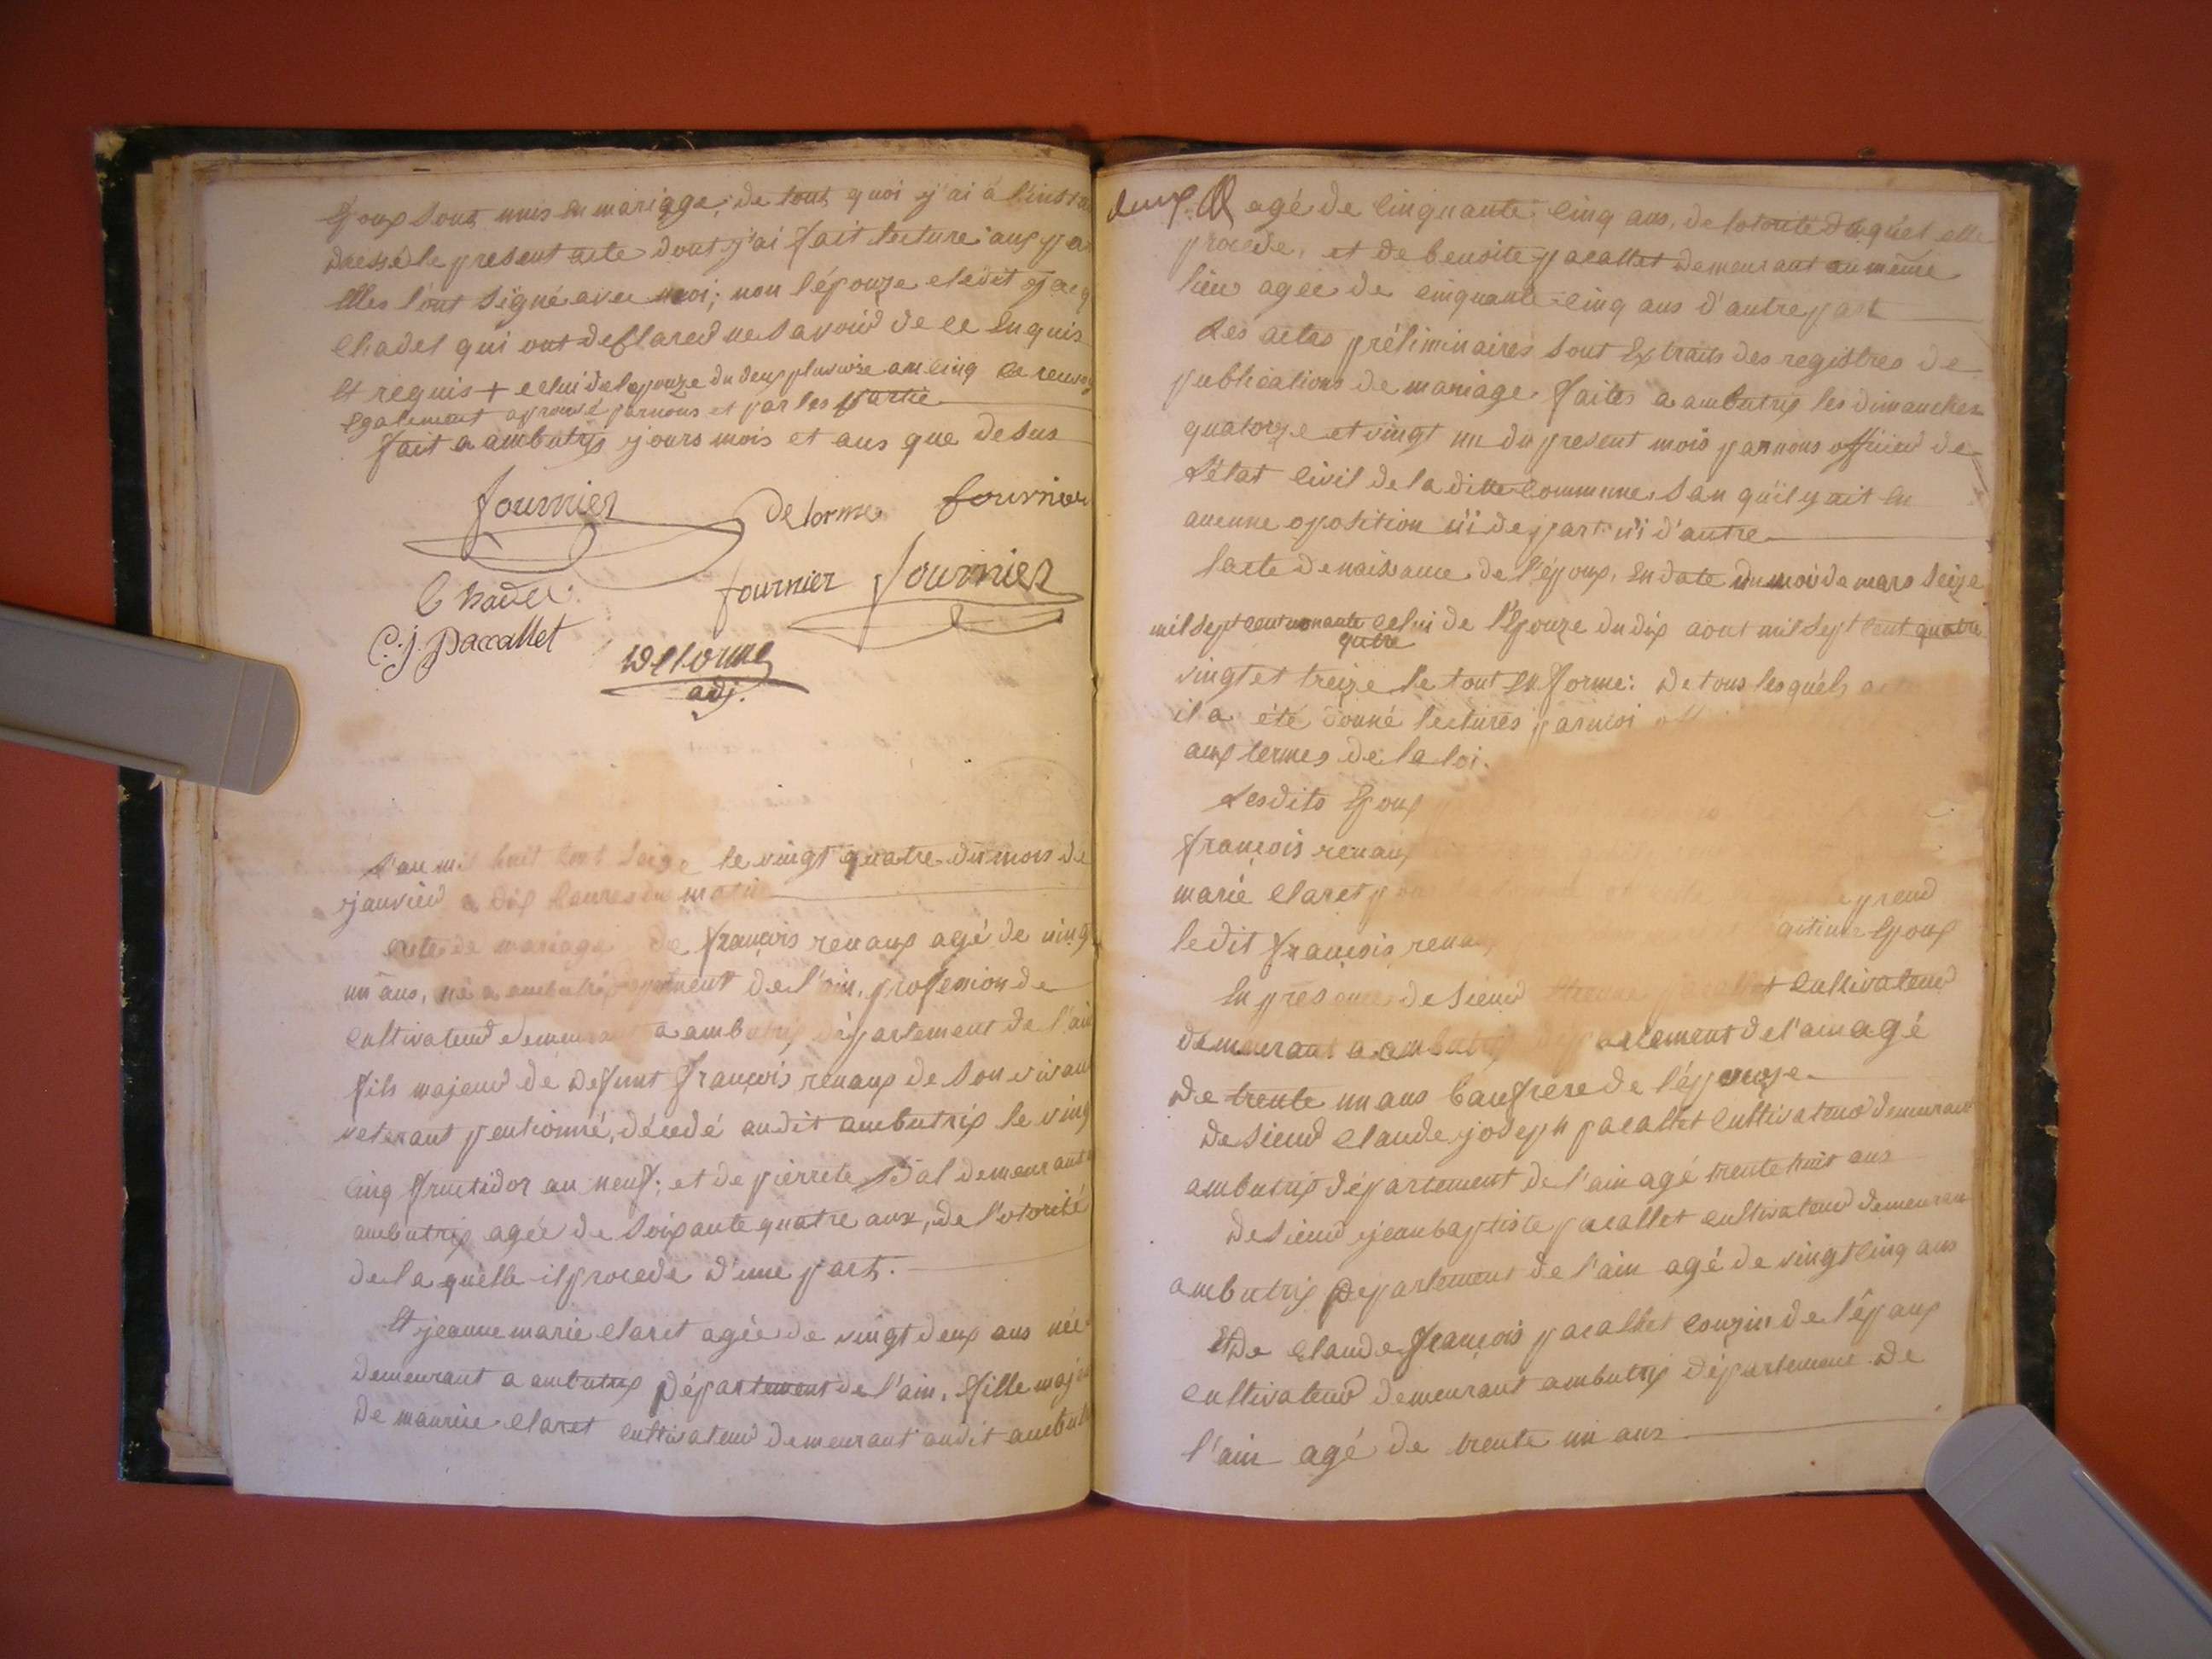 Epoux sont unis en mariage; de tout quoi j'ai à l'insta
dressé le present acte dont j'ai fait lecture aux pa
Elles l'ont signé avec moi; non l'épouze et ledit jacq
Chadel qui ont desclared ne savoir de ce Enquis
Et requis + celui de lepouze du deux pluviose an cinq ce renvoy
Egalement aprouvé parnous et par les partie
fait a ambutrix jours mois et ans que desus
fournier
Delorme
fournier
Chadel
fournier
fournier
C. j. pacallet
Delorme
adj.
L'an mil huit cent seize le vingt quatre du mois de
janvier a dix heures du matin
acte de mariage de françois renaux agé de ving
un ans, né a ambutrix departement de l'ain, profession de
Cultivateur demeurant a ambutrix département de l'ain
fils majeur de defunt françois renaux de son vivant
veterant pentionné, décedé audit ambutrix le ving
cinq fructidor an neuf; et de pierrete Dal demeurant a
ambutrix agée de soixante quatre ans, de l'otorité
de la quelle il procede d'une part.
Et jeanne marie claret agée de vingt deux ans née
demeurant a ambutrix Département de l'ain, fille maje
de maurise claret cultivateur demeurant audit ambut
deux. agé de cinquante cinq ans, de lotorité duquel elle
procede, et de benoite pacallet demeurant au même
lieu agée de cinquante cinq ans d'autre part
Les actes préliminaires sont Extraits des registres de
publications de mariage faites a ambutrix les dimanches
quatorze et vingt un du present mois par nous officier de
L'état civil de la dite commune, san qu'il y ait eu
aucune oposition ni de part ni d'autre
lacte de naissance de l'époux, en date du mois de mars seize
mil sept cent nonante celui de l'Epouze du dix aout mil sept cent quatre
quatre
vingt et treize le tout en forme: de tous lesquels actes
il a été donné lectures par moi
aux termes de la loi.
Lesdits Epoux
françois renaux
marie claret pour prend
ledit françois renaux Epoux
En présence de sieur Etienne pacallet Cultivateur
demeurant a ambutrix département de l'ain agé
de trente un ans baufrere de l'épouze
De sieur Claude joseph pacallet Cultivateur demeurant
ambutrix département de l'ain agé trente huit ans
De sieur jean baptiste pacallet cultivateur demeuran
ambutrix Departement de l'ain agé de vingt cinq ans
Et de claude françois pacallet couzin de l'époux
cultivateur demeurant ambutrix département de
l'ain agé de trente un ans